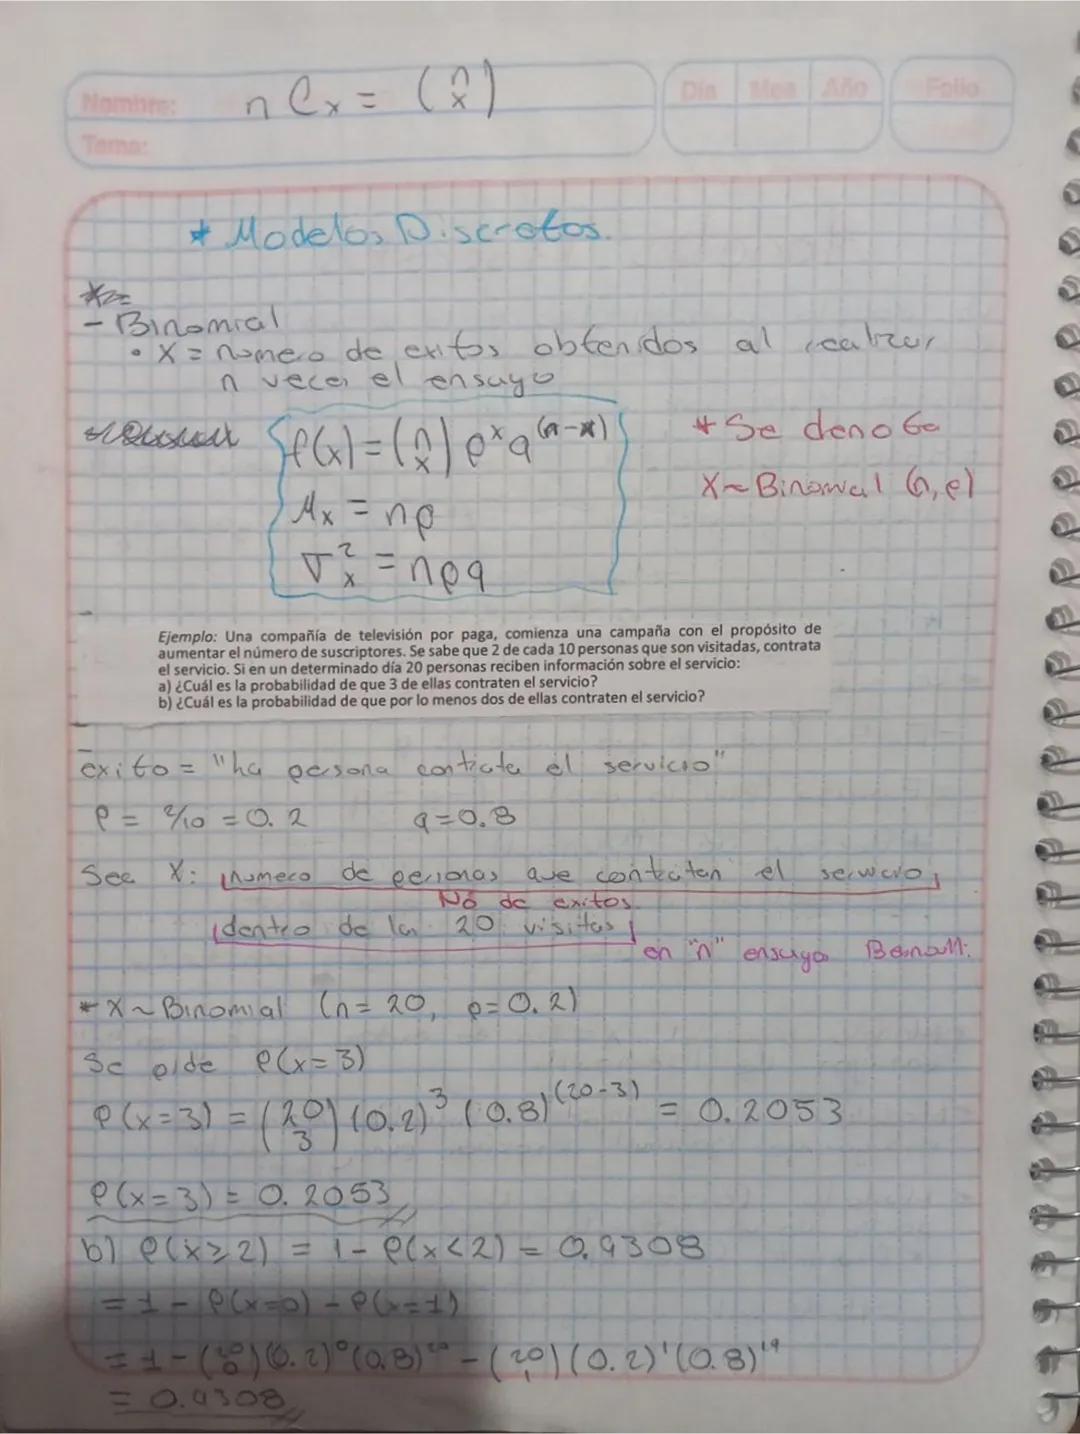 Nombre: n C x = (n x)
Día Mes Año Folio
Tema:
* Modelos Discretos.
- Binomial
• X = numero de exitos obtenidos al realizar
n veces el ensayo
f(x) = (n x) p^x q^(n-x)
* Se denota
X ~ Binomial (n, p)
μx = np
σ²x = npq
Ejemplo: Una compañía de televisión por paga, comienza una campaña con el propósito de
aumentar el número de suscriptores. Se sabe que 2 de cada 10 personas que son visitadas, contrata
el servicio. Si en un determinado día 20 personas reciben información sobre el servicio:
a) ¿Cuál es la probabilidad de que 3 de ellas contraten el servicio?
b) ¿Cuál es la probabilidad de que por lo menos dos de ellas contraten el servicio?
exito = "la persona contrata el servicio"
p = 2/10 = 0.2 q = 0.8
Sea X: numero de personas que contratan el servicio,
No de exitos
dentro de las 20 visitas
en "n" ensayo
* X ~ Binomial (n = 20, p = 0.2)
Se pide P(x = 3)
P(x = 3) = (20 3) (0.2)^3 (0.8)^(20-3) = 0.2053
P(x = 3) = 0.2053
b) P(x ≥ 2) = 1 - P(x < 2) = 0.9308
= 1 - P(x=0) - P(x=1)
= 1 - (20 0)(0.2)^0 (0.8)^20 - (20 1)(0.2)^1 (0.8)^19
= 0.9308